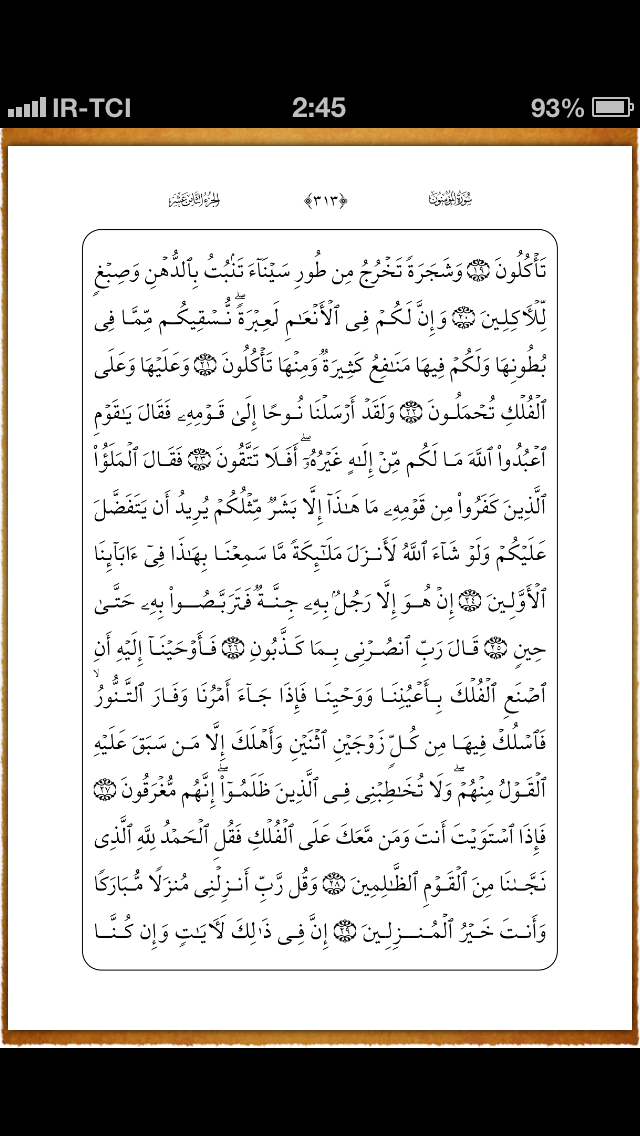 IR-TCI 2:45 93%
سُورَةُ المُؤۡمِنُونَ ﴿٣١٣﴾ الجُزۡءُ الثَّامِنَ عَشَرَ
تَأۡكُلُونَ ١٩ وَشَجَرَةٗ تَخۡرُجُ مِن طُورِ سَيۡنَآءَ تَنۢبُتُ بِٱلدُّهۡنِ وَصِبۡغٖ
لِّلۡأٓكِلِينَ ٢٠ وَإِنَّ لَكُمۡ فِي ٱلۡأَنۡعَٰمِ لَعِبۡرَةٗۖ نُّسۡقِيكُم مِّمَّا فِي
بُطُونِهَا وَلَكُمۡ فِيهَا مَنَٰفِعُ كَثِيرَةٞ وَمِنۡهَا تَأۡكُلُونَ ٢١ وَعَلَيۡهَا وَعَلَى
ٱلۡفُلۡكِ تُحۡمَلُونَ ٢٢ وَلَقَدۡ أَرۡسَلۡنَا نُوحًا إِلَىٰ قَوۡمِهِۦ فَقَالَ يَٰقَوۡمِ
ٱعۡبُدُواْ ٱللَّهَ مَا لَكُم مِّنۡ إِلَٰهٍ غَيۡرُهُۥٓۖ أَفَلَا تَتَّقُونَ ٢٣ فَقَالَ ٱلۡمَلَؤُاْ
ٱلَّذِينَ كَفَرُواْ مِن قَوۡمِهِۦ مَا هَٰذَآ إِلَّا بَشَرٞ مِّثۡلُكُمۡ يُرِيدُ أَن يَتَفَضَّلَ
عَلَيۡكُمۡ وَلَوۡ شَآءَ ٱللَّهُ لَأَنزَلَ مَلَٰٓئِكَةٗ مَّا سَمِعۡنَا بِهَٰذَا فِيٓ ءَابَآئِنَا
ٱلۡأَوَّلِينَ ٢٤ إِنۡ هُوَ إِلَّا رَجُلُۢ بِهِۦ جِنَّةٞ فَتَرَبَّصُواْ بِهِۦ حَتَّىٰ
حِينٖ ٢٥ قَالَ رَبِّ ٱنصُرۡنِي بِمَا كَذَّبُونِ ٢٦ فَأَوۡحَيۡنَآ إِلَيۡهِ أَنِ
ٱصۡنَعِ ٱلۡفُلۡكَ بِأَعۡيُنِنَا وَوَحۡيِنَا فَإِذَا جَآءَ أَمۡرُنَا وَفَارَ ٱلتَّنُّورُ ۙ
فَٱسۡلُكۡ فِيهَا مِن كُلّٖ زَوۡجَيۡنِ ٱثۡنَيۡنِ وَأَهۡلَكَ إِلَّا مَن سَبَقَ عَلَيۡهِ
ٱلۡقَوۡلُ مِنۡهُمۡۖ وَلَا تُخَٰطِبۡنِي فِي ٱلَّذِينَ ظَلَمُوٓاْۖ إِنَّهُم مُّغۡرَقُونَ ٢٧
فَإِذَا ٱسۡتَوَيۡتَ أَنتَ وَمَن مَّعَكَ عَلَى ٱلۡفُلۡكِ فَقُلِ ٱلۡحَمۡدُ لِلَّهِ ٱلَّذِي
نَجَّىٰنَا مِنَ ٱلۡقَوۡمِ ٱلظَّٰلِمِينَ ٢٨ وَقُل رَّبِّ أَنزِلۡنِي مُنزَلٗا مُّبَارَكٗا
وَأَنتَ خَيۡرُ ٱلۡمُنزِلِينَ ٢٩ إِنَّ فِي ذَٰلِكَ لَأٓيَٰتٖ وَإِن كُنَّا